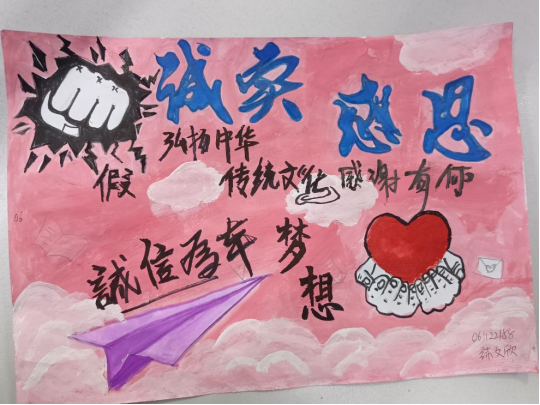 诚实 感恩
弘扬中华
假 传统文化 感谢有你
誠信為本 梦
想
06